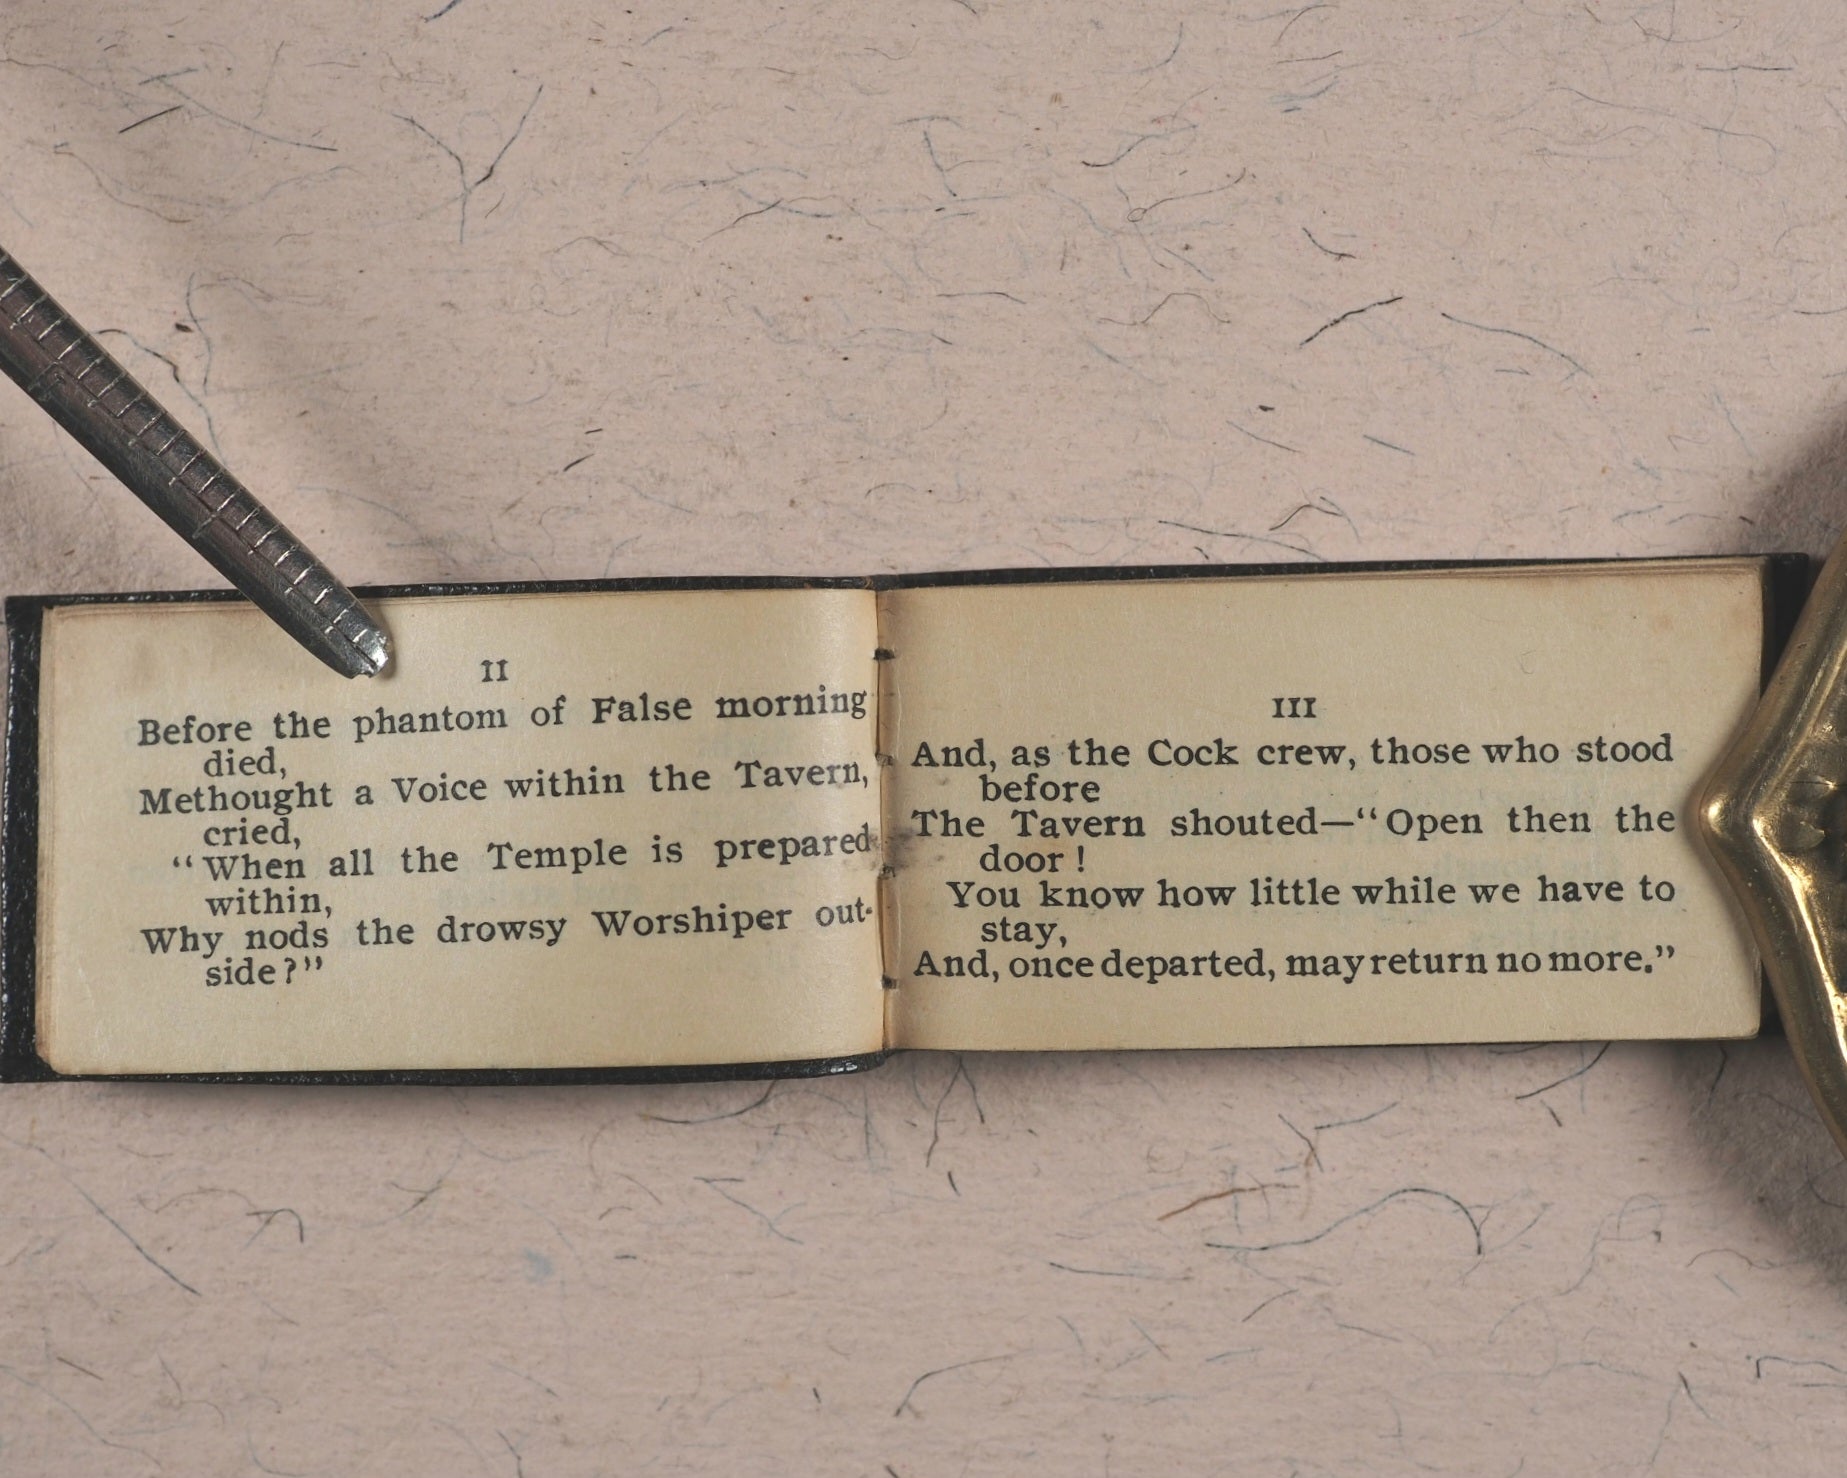 II
Before the phantom of False morning
died,
Methought a Voice within the Tavern,
cried,
"When all the Temple is prepared
within,
Why nods the drowsy Worshiper out-
side?"
III
And, as the Cock crew, those who stood
before
The Tavern shouted—"Open then the
door!
You know how little while we have to
stay,
And, once departed, may return no more."